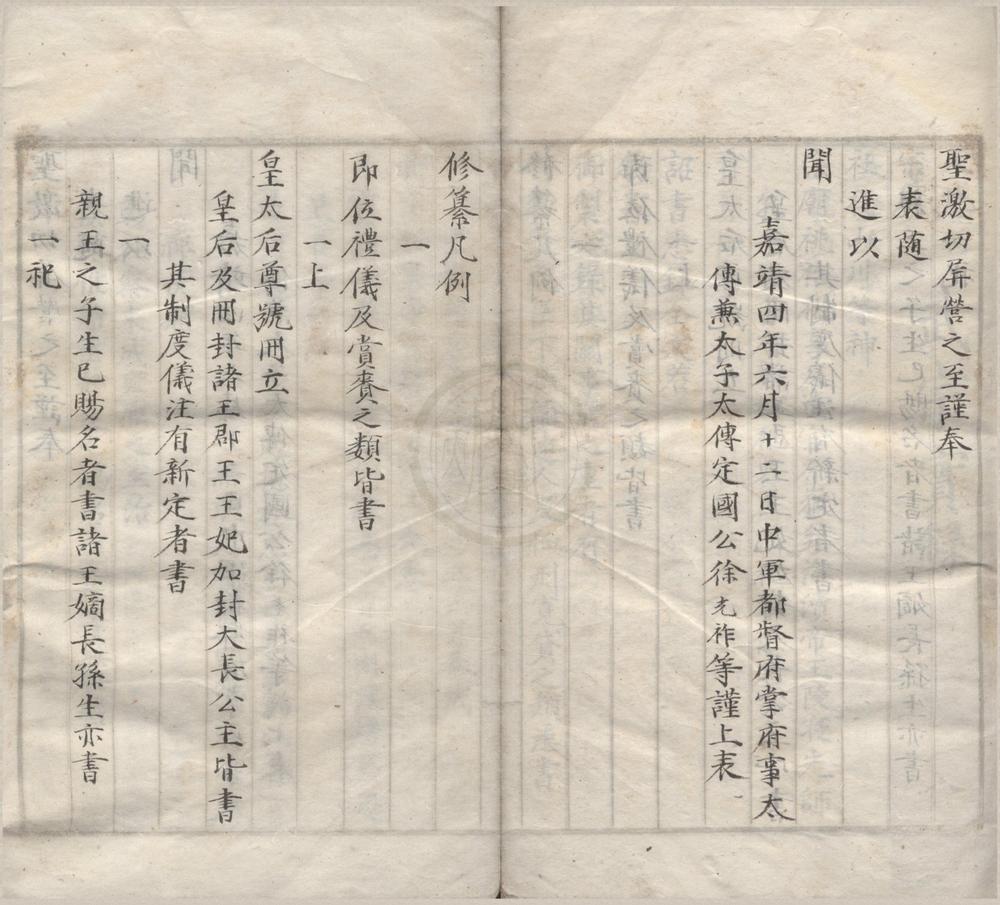 聖激切屏營之至謹奉
表随
進以
聞
嘉靖四年六月十二日中軍都督府掌府事太
傳兼太子太傳定國公徐光祚等謹上表
修纂凡例
一
即位禮儀及賞賚之類皆書
一上
皇太后尊號冊立
皇后及冊封諸王郡王王妃加封大長公主皆書
其制度儀注有新定者書
一
親王之子生已賜名者書諸王嫡長孫生亦書
一祀